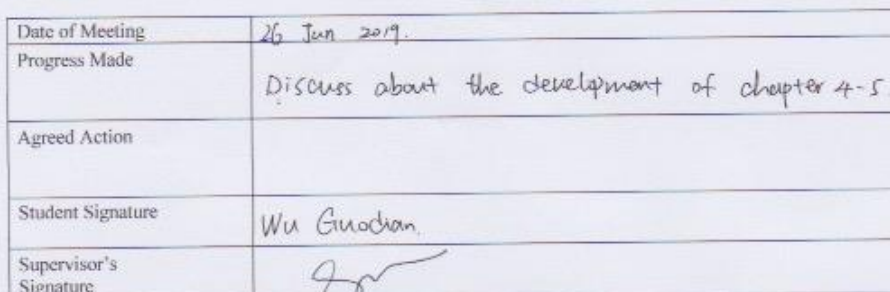 Date of Meeting 26 Jun 2019.
Progress Made
Discuss about the development of chapter 4-5.
Agreed Action
Student Signature Wu Guodian.
Supervisor's
Signature